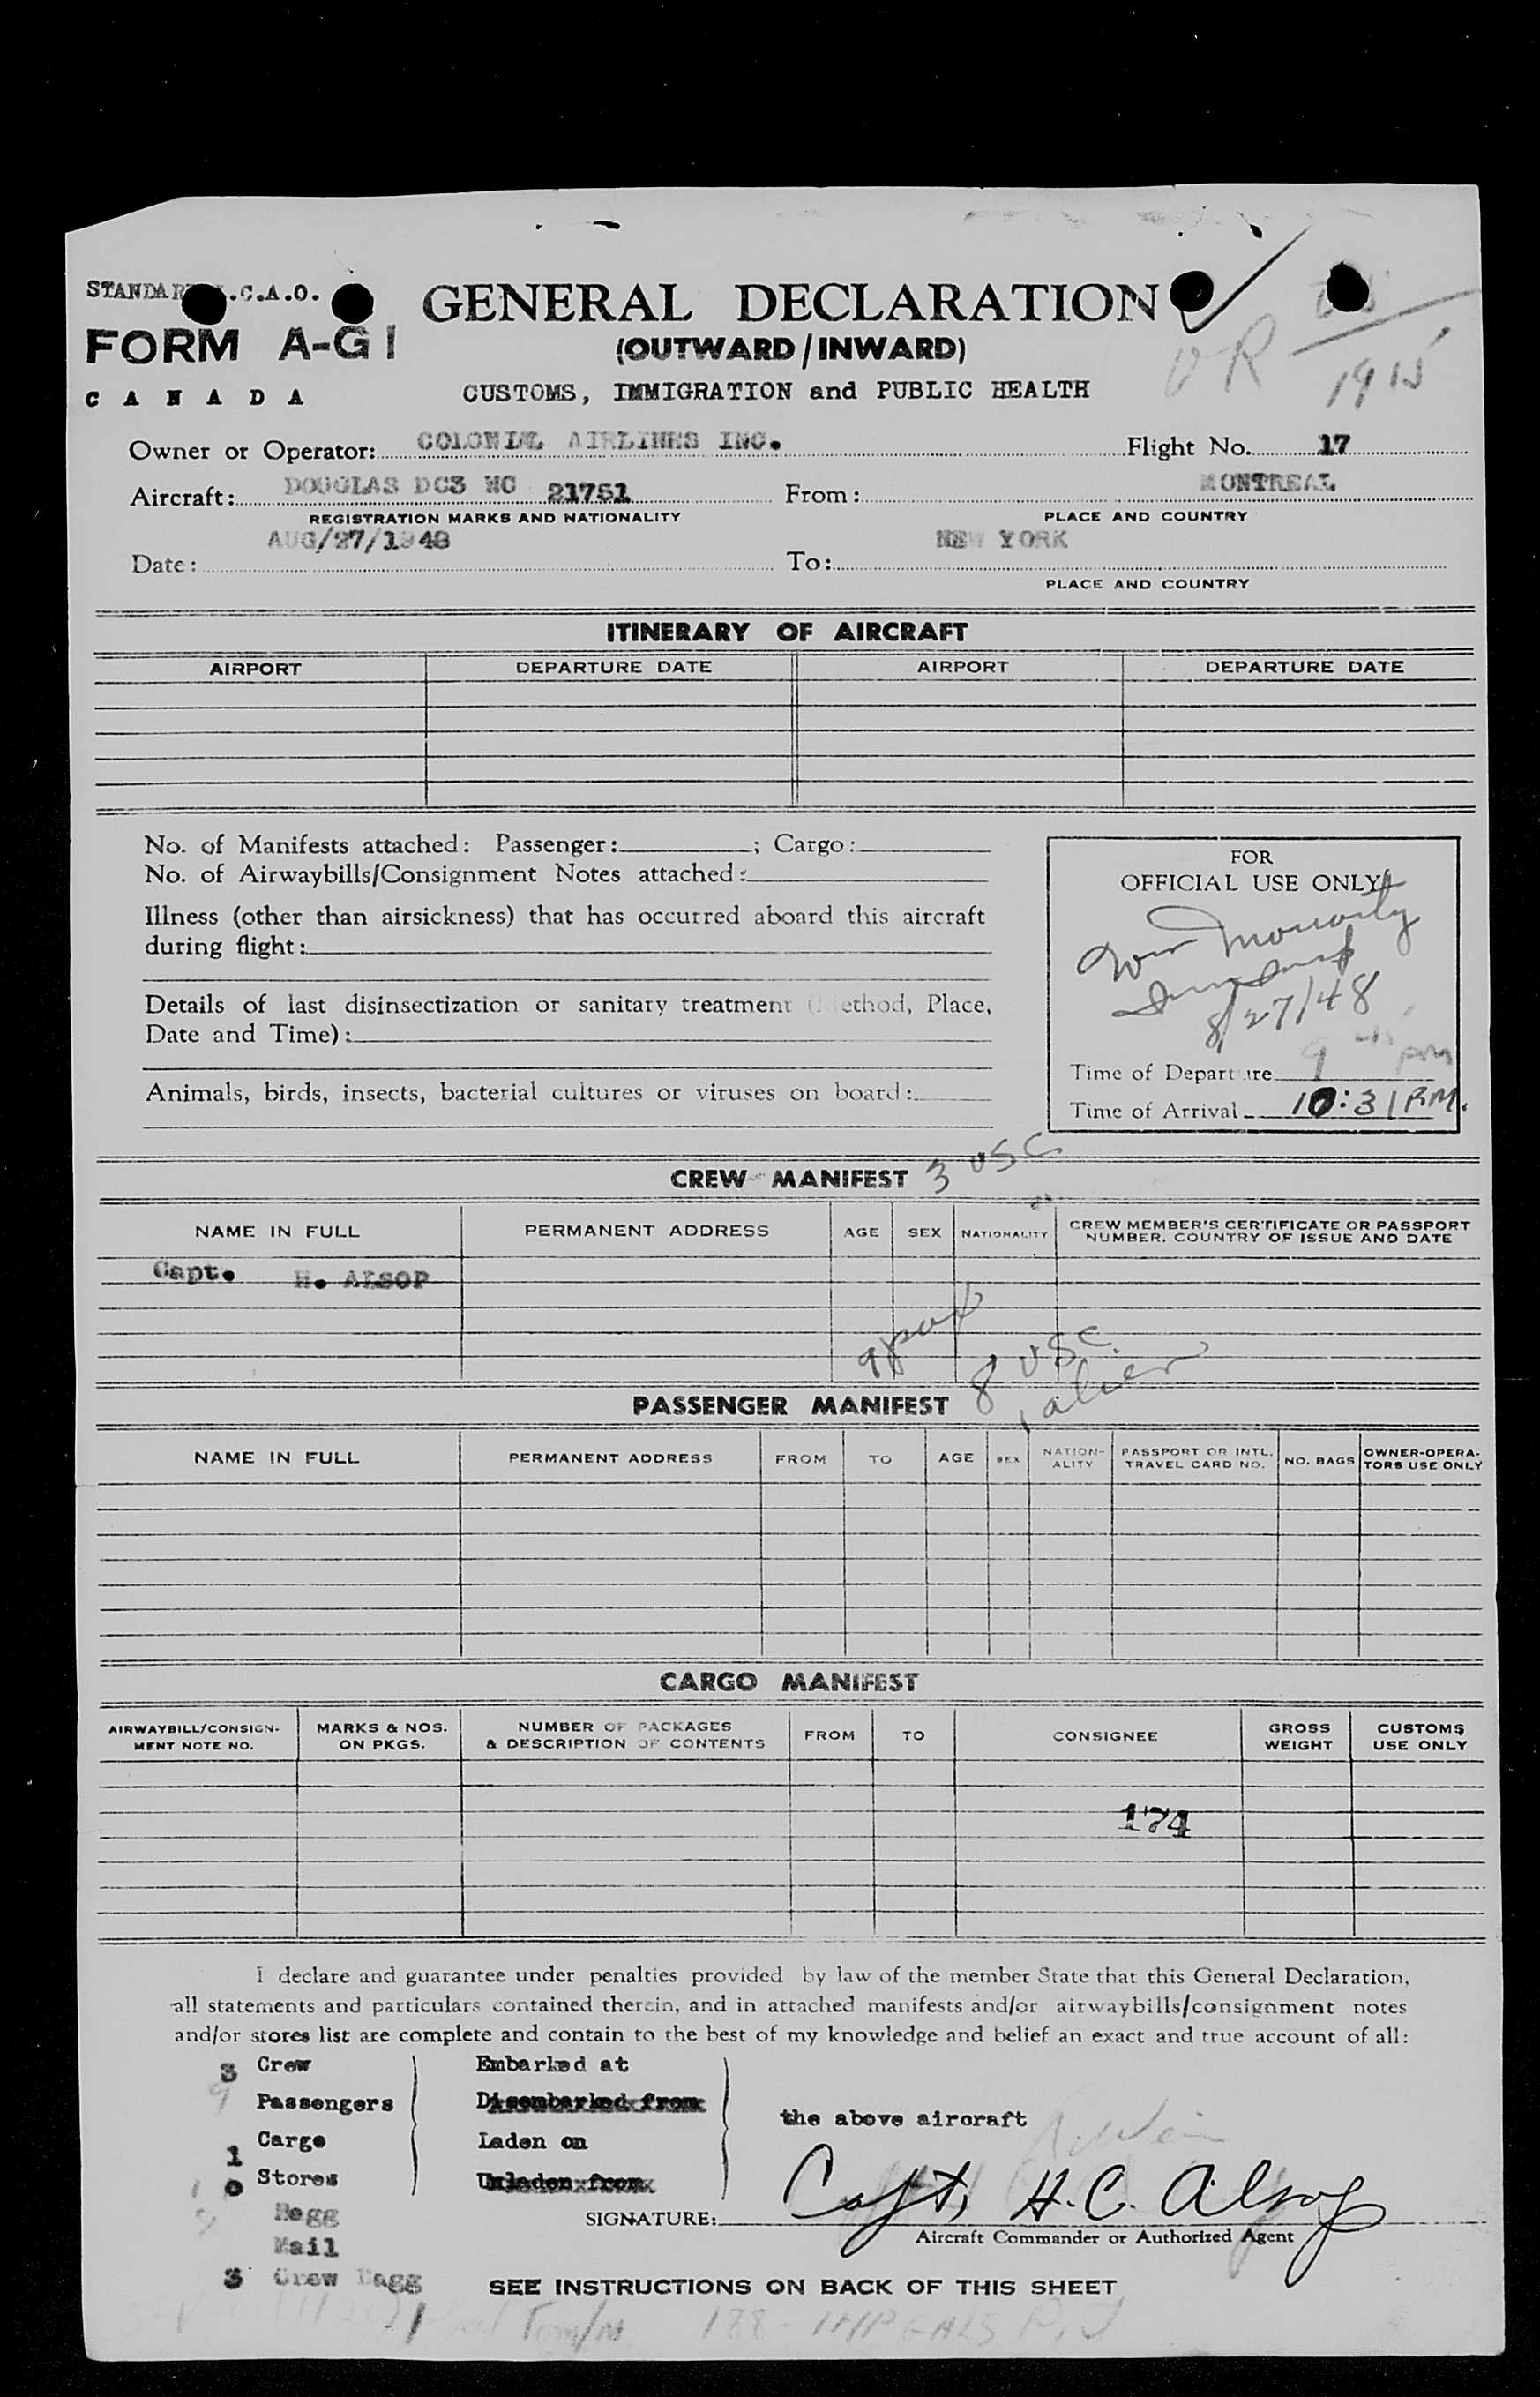 STANDARD .C.A.O.
FORM A-G1
CANADA
GENERAL DECLARATION
(OUTWARD/INWARD)
CUSTOMS, IMMIGRATION and PUBLIC HEALTH
1915
Owner or Operator: COLONIAL AIRLINES INC. Flight No. 17
Aircraft: DOUGLAS DC3 NC 21751 From: MONTREAL
REGISTRATION MARKS AND NATIONALITY PLACE AND COUNTRY
Date: AUG/27/1948 To: NEW YORK
PLACE AND COUNTRY
ITINERARY OF AIRCRAFT
AIRPORT DEPARTURE DATE AIRPORT DEPARTURE DATE
No. of Manifests attached: Passenger: ; Cargo:
No. of Airwaybills/Consignment Notes attached:
Illness (other than airsickness) that has occurred aboard this aircraft
during flight:
Details of last disinsectization or sanitary treatment (Method, Place,
Date and Time):
Animals, birds, insects, bacterial cultures or viruses on board:
FOR
OFFICIAL USE ONLY
Wm Moriarty
8/27/48
Time of Departure 9 45 pm
Time of Arrival 10:31 P.M.
CREW MANIFEST 3 USC
NAME IN FULL PERMANENT ADDRESS AGE SEX NATIONALITY CREW MEMBER'S CERTIFICATE OR PASSPORT
NUMBER, COUNTRY OF ISSUE AND DATE
Capt. H. ALSOP
9 pax
8 USC
1 alien
PASSENGER MANIFEST
NAME IN FULL PERMANENT ADDRESS FROM TO AGE SEX NATION-
ALITY PASSPORT OR INTL.
TRAVEL CARD NO. NO. BAGS OWNER-OPERA-
TORS USE ONLY
CARGO MANIFEST
AIRWAYBILL/CONSIGN-
MENT NOTE NO. MARKS & NOS.
ON PKGS. NUMBER OF PACKAGES
& DESCRIPTION OF CONTENTS FROM TO CONSIGNEE GROSS
WEIGHT CUSTOMS
USE ONLY
174
I declare and guarantee under penalties provided by law of the member State that this General Declaration,
all statements and particulars contained therein, and in attached manifests and/or airwaybills/consignment notes
and/or stores list are complete and contain to the best of my knowledge and belief an exact and true account of all:
3 Crew Embarked at
9 Passengers Disembarked from
the above aircraft
1 Cargo Laden on
0 Stores Unladen from
Bagg
Mail
3 Crew Bagg
SIGNATURE: Capt. H. C. Alsop
Aircraft Commander or Authorized Agent
SEE INSTRUCTIONS ON BACK OF THIS SHEET